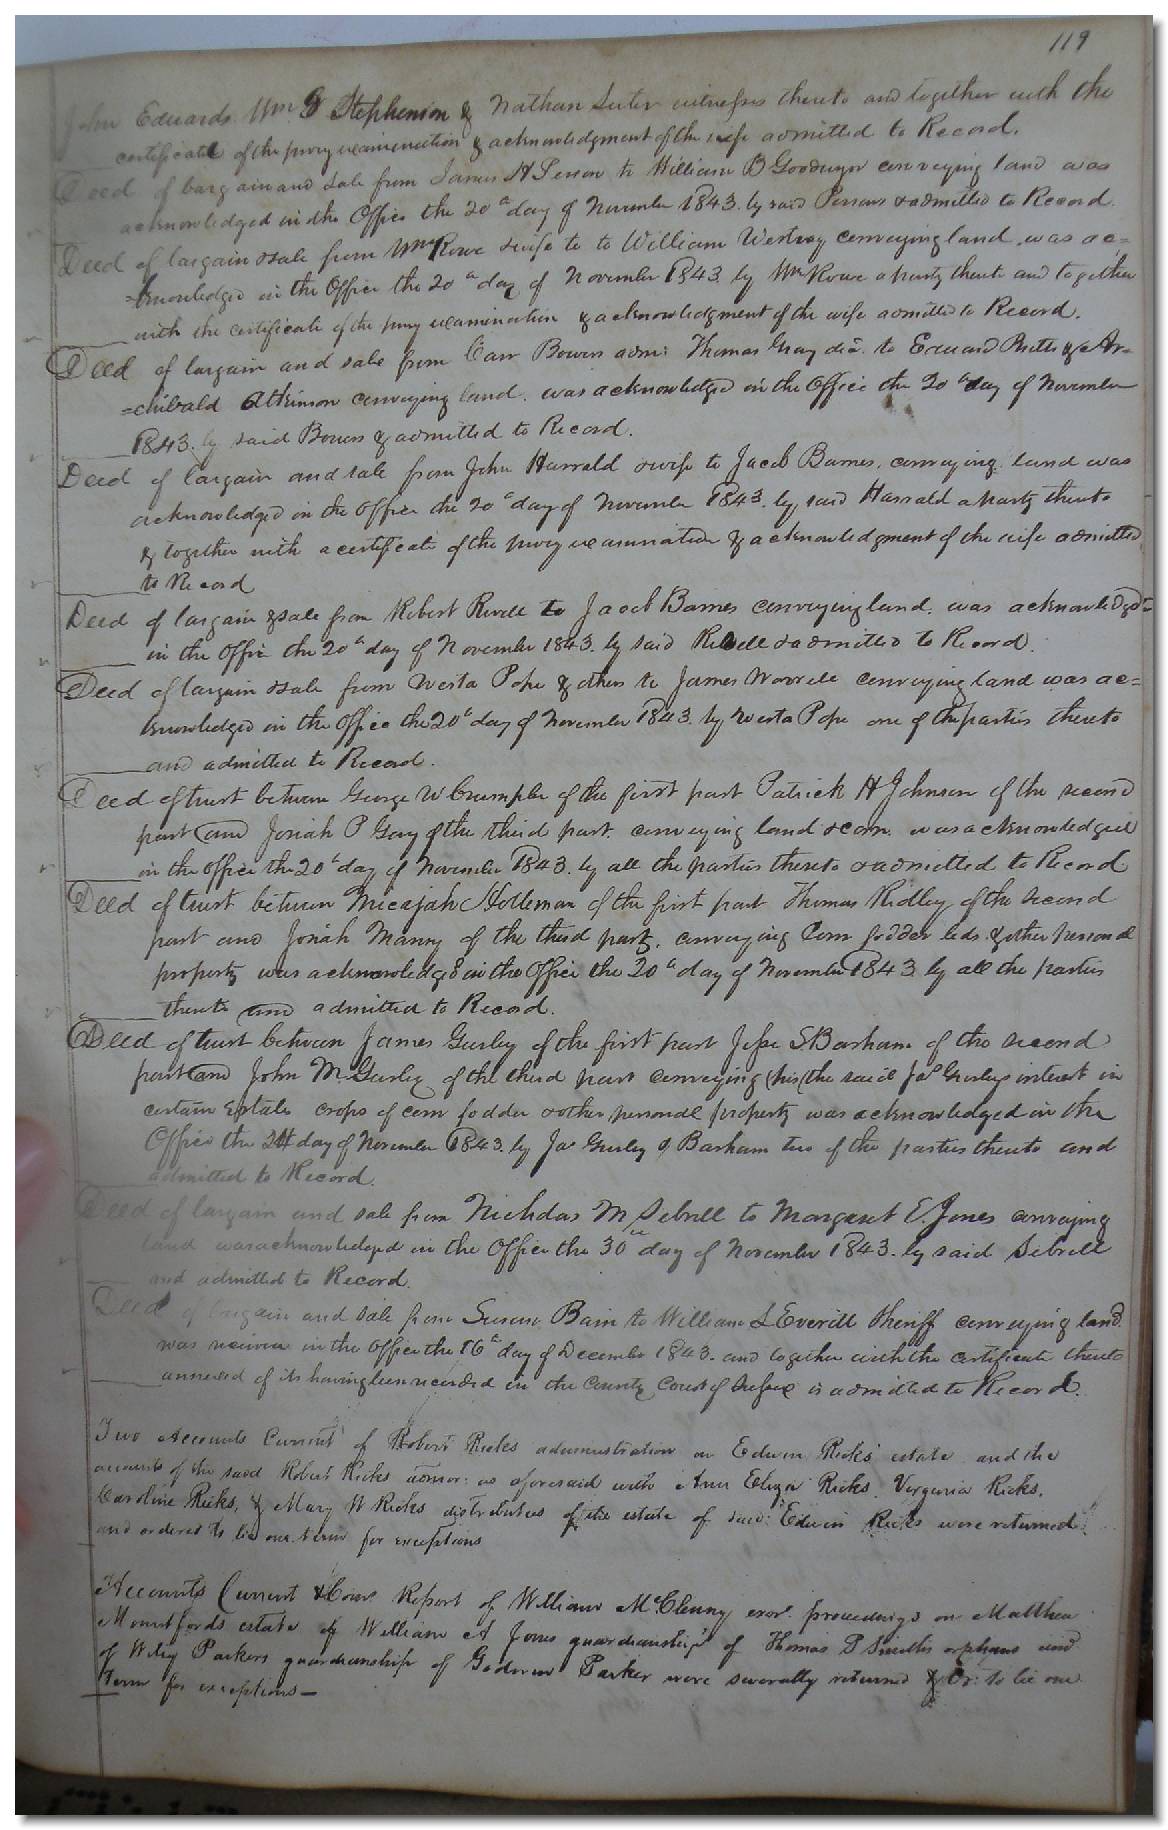 119
John Edwards. Wm G Stephenson & Nathan Luter witnesses thereto and together with the
certificate of the privy examination & acknowledgment of the wife admitted to Record.
Deed of bargain and sale from James H Person to William B Goodwyn conveying land was
acknowledged in the Office the 20th day of November 1843. by said Persons & admitted to Record.
Deed of bargain & sale from Wm Rowe & wife to to William Westray conveying land was ac=
=knowledged in the Office the 20th day of November 1843. by Wm Rowe a party thereto and together
with the certificate of the privy examination & acknowledgment of the wife admitted to Record.
Deed of bargain and sale from Carr Bowers admr: Thomas Gray decd. to Edward Butts & Ar=
=chibald Atkinson conveying land. was acknowledged in the Office the 20th day of November
1843. by said Bowers & admitted to Record.
Deed of bargain and sale from John Harrald & wife to Jacob Barnes. conveying land was
acknowledged in the Office the 20th day of November 1843. by said Harrald a party thereto
& together with a certificate of the privy examination & acknowledgment of the wife admitted
to Record
Deed of bargain & sale from Robert Revell to Jacob Barnes conveying land. was acknowledged
in the Office the 20th day of November 1843. by said Revell & admitted to Record.
Deed of bargain & sale from Westa Pope & others to James Worrell conveying land was ac=
knowledged in the Office the 20th day of November 1843. by Westa Pope one of the parties thereto
and admitted to Record.
Deed of trust between George W Crumpler of the first part Patrick H Johnson of the second
part and Josiah P Gay of the third part. conveying land & corn. was acknowledged
in the Office the 20th day of November 1843. by all the parties thereto & admitted to Record
Deed of trust between Micajah Holleman of the first part Thomas Ridley of the second
part and Josiah Manry of the third part. conveying Corn fodder beds. & other personal
property was acknowledged in the Office the 20th day of November 1843 by all the parties
thereto and admitted to Record.
Deed of trust between James Gurley of the first part Jesse S Barham of the second
part and John M Gurley of the third part conveying (his) the said Jas Gurleys interest in
certain Estate crops of corn fodder & other personal property was acknowledged in the
Office the 24 day of November 1843. by Jas Gurley & Barham two of the parties thereto and
admitted to Record.
Deed of bargain and sale from Nicholas M Sebrell to Margaret E. Jones conveying
land was acknowledged in the Office the 30th day of November 1843. by said Sebrell
and admitted to Record.
Deed of bargain and sale from Susan Bain to William L Everitt Sheriff conveying land.
was received in the Office the 16th day of December 1843. and together with the certificate thereto
annexed of its having been recorded in the County Court of Sussex is admitted to Record.
Two Accounts Current of Robert Ricks administration on Edwin Ricks' estate and the
accounts of the said Robert Ricks admor: as aforesaid with Ann Eliza Ricks. Virginia Ricks.
Caroline Ricks, & Mary W Ricks distributees of the estate of said Edwin Ricks were returned
and ordered to lie one term for exceptions
Accounts Current & Coms Report of William McClenny exor. proceedings on Matthew
Mountfords estate of William A Jones guardianship of Thomas P Smiths orphans and
of Wiley Parkers guardianship of Godwin Parker were severally returned & Or: to lie one
term for exceptions—